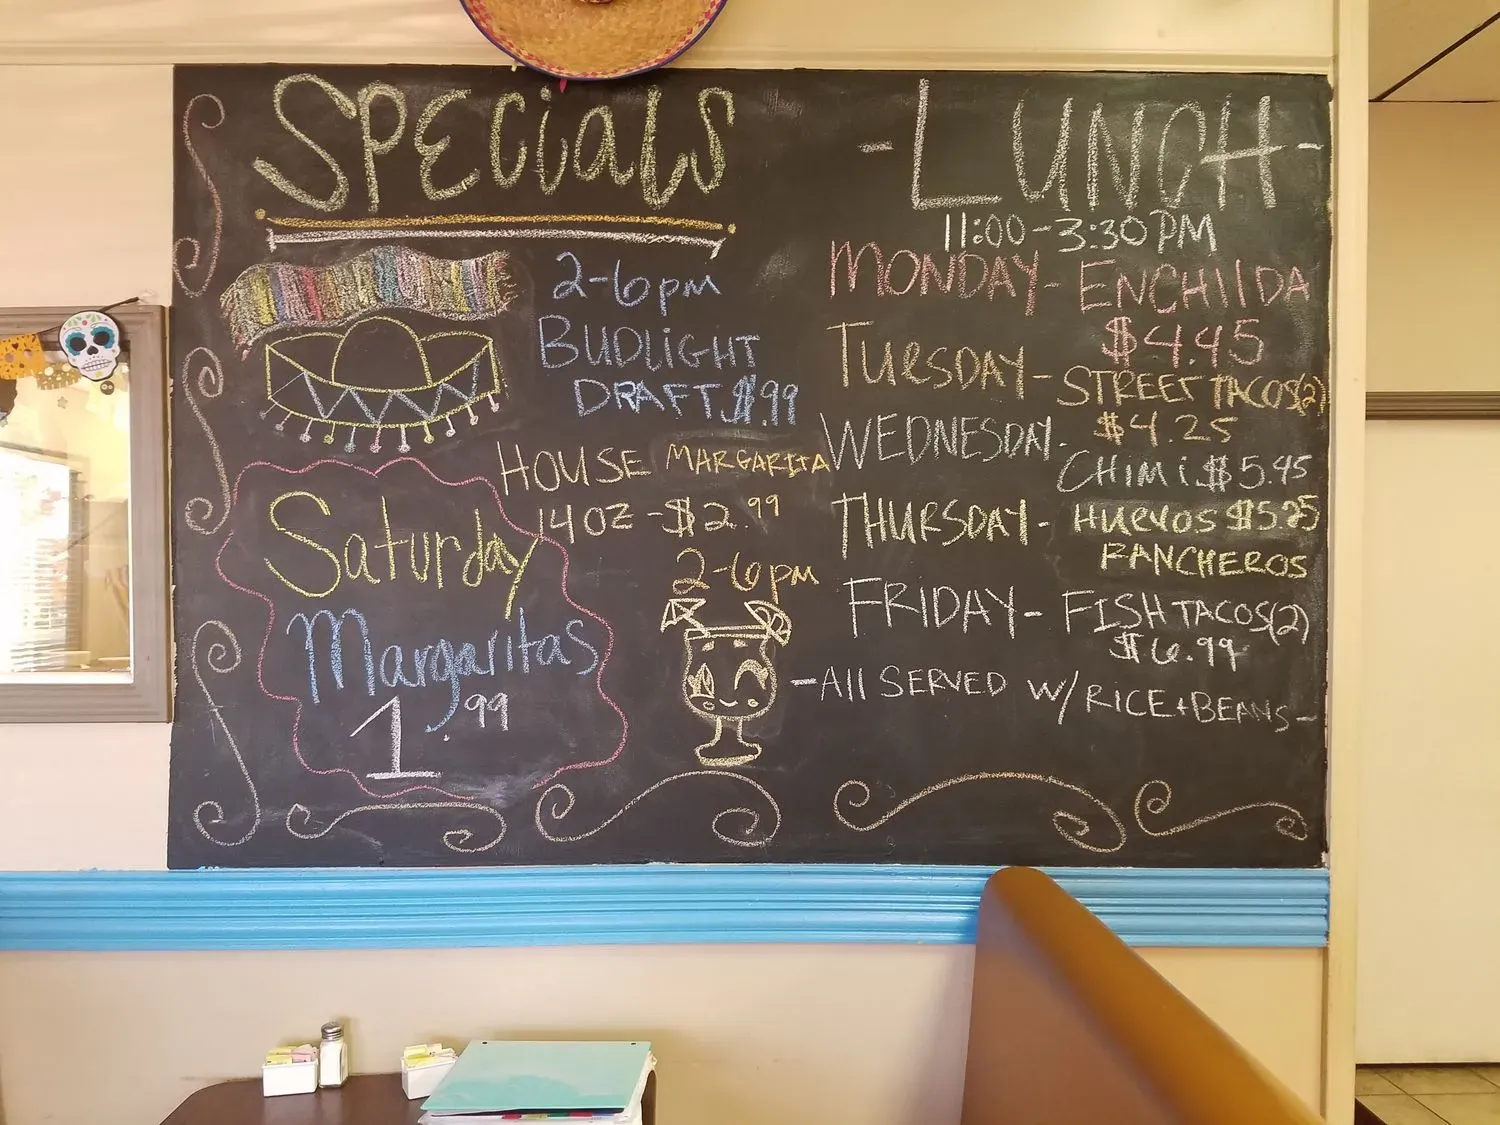 SPECiaLS
2-6pm
BUDLiGHT
DRAFT $.99
HOUSE MARGARITA
14OZ - $2.99
2-6pm
Saturday
Margaritas
1.99
-LUNCH-
11:00-3:30PM
MONDAY- ENCHIlDA
$4.45
TUeSDAY- STREET TACOS(2)
$4.25
WEDNESDAY- CHIMi $5.45
THURSDAY- HUevos $5.25
RANCHEROS
FRIDAY- FISH TACOS(2)
$6.99
-All SERVED W/ RICE+BEANS-